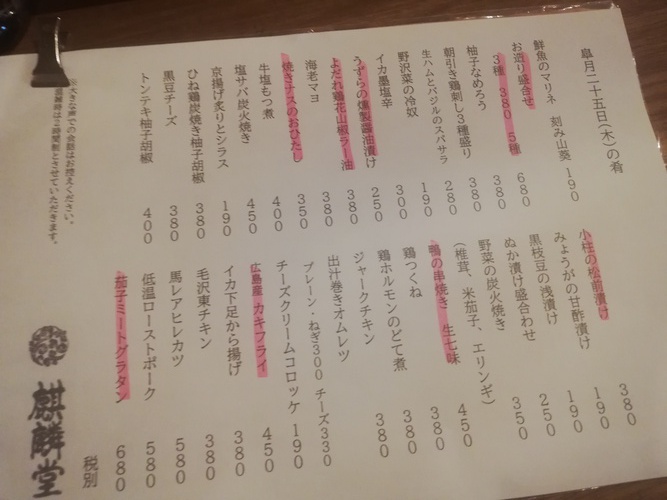 皐月二十五日(木)の肴
鮮魚のマリネ 刻み山葵 190
お造り盛合せ
3種 380 5種 680
柚子なめろう 380
朝引き鶏刺し3種盛り 380
生ハムとバジルのスパサラ 280
野沢菜の冷奴 190
イカ墨塩辛 300
うずらの燻製醤油漬け 250
よだれ鶏花山椒ラー油 380
海老マヨ 380
焼きナスのおひたし 350
牛塩もつ煮 400
塩サバ炭火焼き 450
京揚げ炙りとシラス 190
ひね鶏炭焼き柚子胡椒 380
黒豆チーズ 380
トンテキ柚子胡椒 400
380
小柱の松前漬け 190
みょうがの甘酢漬け 190
黒枝豆の浅漬け 250
ぬか漬け盛合わせ 350
野菜の炭火焼き
(椎茸、米茄子、エリンギ) 450
鴨の串焼き 生七味 380
鶏つくね 380
鶏ホルモンのどて煮 380
ジャークチキン
出汁巻きオムレツ
プレーン・ねぎ300 チーズ330
チーズクリームコロッケ 190
広島産 カキフライ 450
イカ下足から揚げ 380
毛沢東チキン 380
馬レアヒレカツ 580
低温ローストポーク 580
茄子ミートグラタン 680
税別
※大きな声での会話はお控えください。
混雑時は2時間制とさせていただきます。
麒麟堂